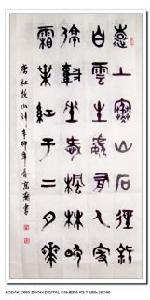 遠上寒山石徑斜
白雲生處有人家
停車坐愛楓林晚
霜葉紅於二月花
唐杜牧山行詩辛卯年書